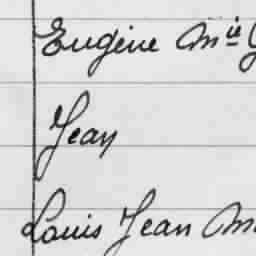 Eugène Mie
Jean
Louis Jean M